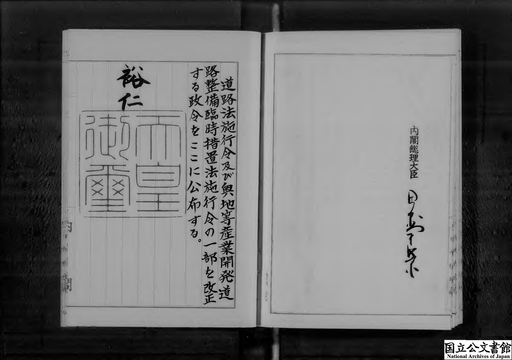 内閣総理大臣
道路法施行令及び奥地等産業開発道
路整備臨時措置法施行令の一部を改正
する政令をここに公布する。
裕仁
天皇
御璽
内閣
国立公文書館
National Archives of Japan